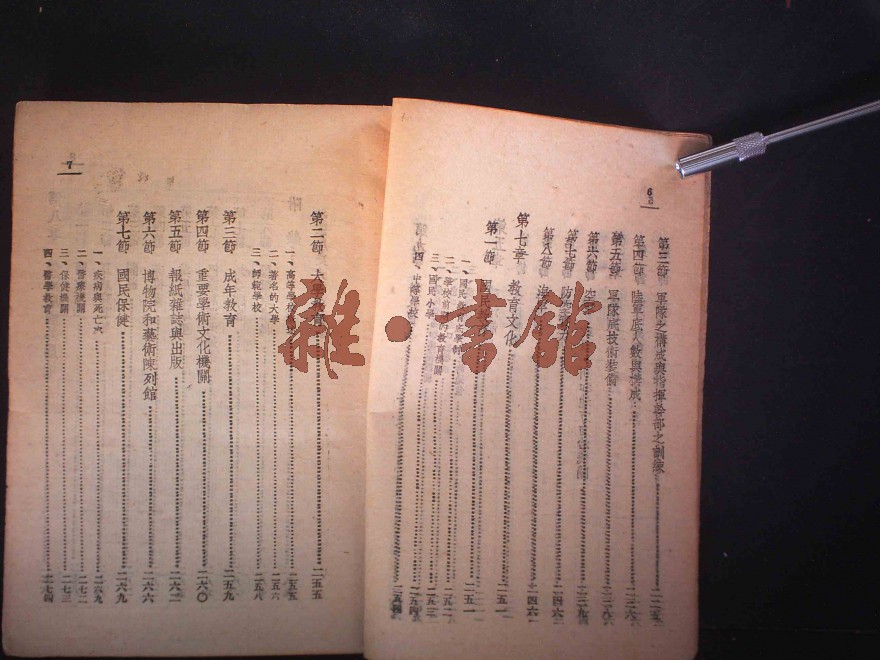 6
第三節 軍隊之構成與指揮幹部之訓練
第四節 陸軍底人數與構成 二二六
第五節 軍隊底技術裝備 二二八
第六節 空
第七節 防空 二四三
第八節 海 二四六
第七章 教育文化 二五一
第一節 國民 二五一
一、國民
二、學校前期的教育機關 二五二
三、國民小學 二五三
四、中等學校 二五四
7
第二節 大學教育 二五五
一、高等學校 二五五
二、著名的大學 二五六
三、師範學校 二五八
第三節 成年教育 二五九
第四節 重要學術文化機關 二六〇
第五節 報紙雜誌與出版 二六二
第六節 博物院和藝術陳列館 二六六
第七節 國民保健 二六九
一、疾病與死亡 二六九
二、醫療機關 二七二
三、保健機關 二七三
四、醫學教育 二七四
雜·書館